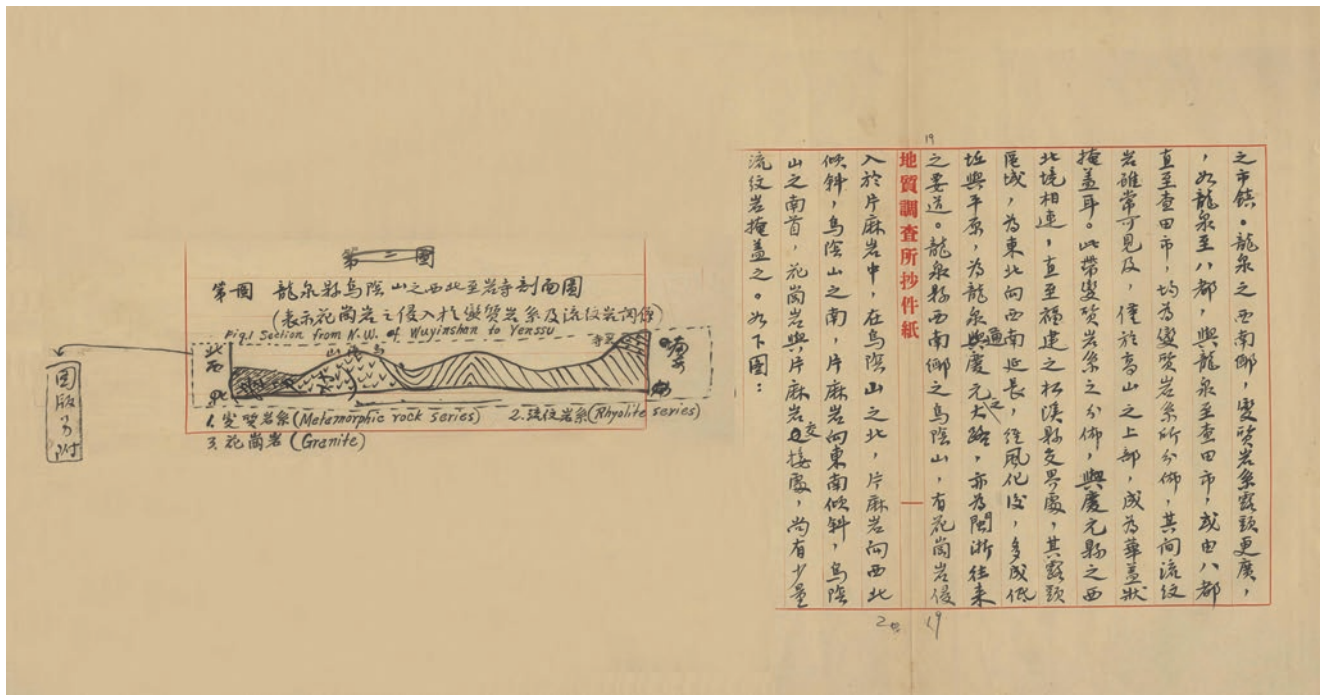 19
之市鎮。龍泉之西南鄉，變質岩系露頭更廣，
，如龍泉至八都，與龍泉至查田市，或由八都
直至查田市，均為變質岩系所分佈，其间流紋
岩雖常可見及，僅於高山之上部，成為華蓋狀
掩盖耳。此帶變质岩系之分佈，與慶元縣之西
北境相連，直至福建之松溪縣交界處，其露頭
區域，為東北向西南延長，經風化後，多成低
坵與平原，為龍泉通慶元之大路，亦為閩浙往来
之要道。龍泉縣西南鄉之烏陰山，有花崗岩侵
地質調查所抄件紙
入於片麻岩中，在烏陰山之北，片麻岩向西北
傾斜，烏陰山之南，片麻岩向東南傾斜，烏陰
山之南首，花崗岩與片麻岩交接處，尚有少量
流紋岩掩盖之。如下圖：
19
2
第二圖
第 圖 龍泉縣烏陰山之西北至岩寺剖面圖
(表示花崗岩之侵入於變質岩系及流紋岩
Fig.1 Section from N.W. of Wuyinshan to Yenssu
西北
烏陰山
寺岩
1. 变質岩系(Metamorphic rock series) 2. 流纹岩系(Rhyolite series)
3. 花崗岩 (Granite)
圖版另附